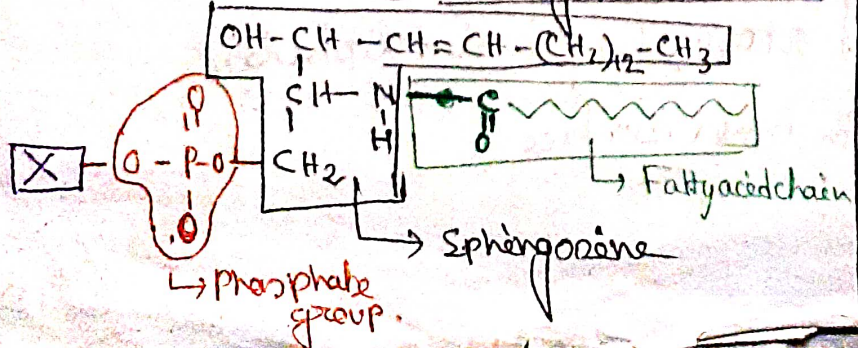 OH-CH-CH=CH-(CH2)12-CH3
O CH-N-C
H O
X-O-P-O-CH2
O
Fattyacidchain
Sphingosine
Phosphate
group.